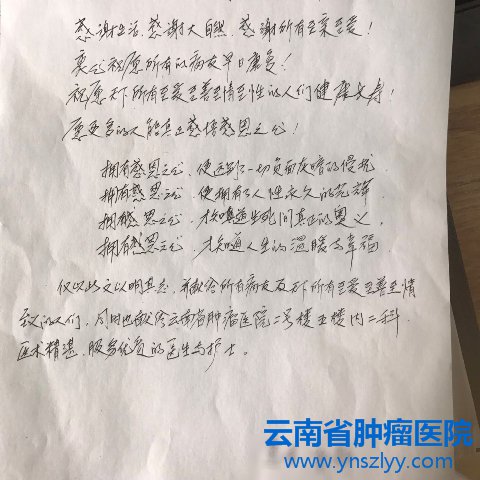 感谢生活、感谢大自然、感谢所有至亲至爱！
衷心祝愿所有的病友早日康复！
祝愿天下所有至爱至善至情至性的人们健康长寿！
愿更多的人能真正感悟感恩之心！
拥有感恩之心，便远离了一切负面灰暗的侵扰
拥有感恩之心，便拥有了人性永久的光辉
拥有感恩之心，才知道生死间真正的奥义，
拥有感恩之心，才知道人生的温暖与幸福
仅以此文以明其志，献给所有病友及天下所有至爱至善至情
至义的人们，同时也献给云南省肿瘤医院二号楼五楼内二科
医术精湛、服务优质的医生与护士。
云南省肿瘤医院
www.ynszlyy.com